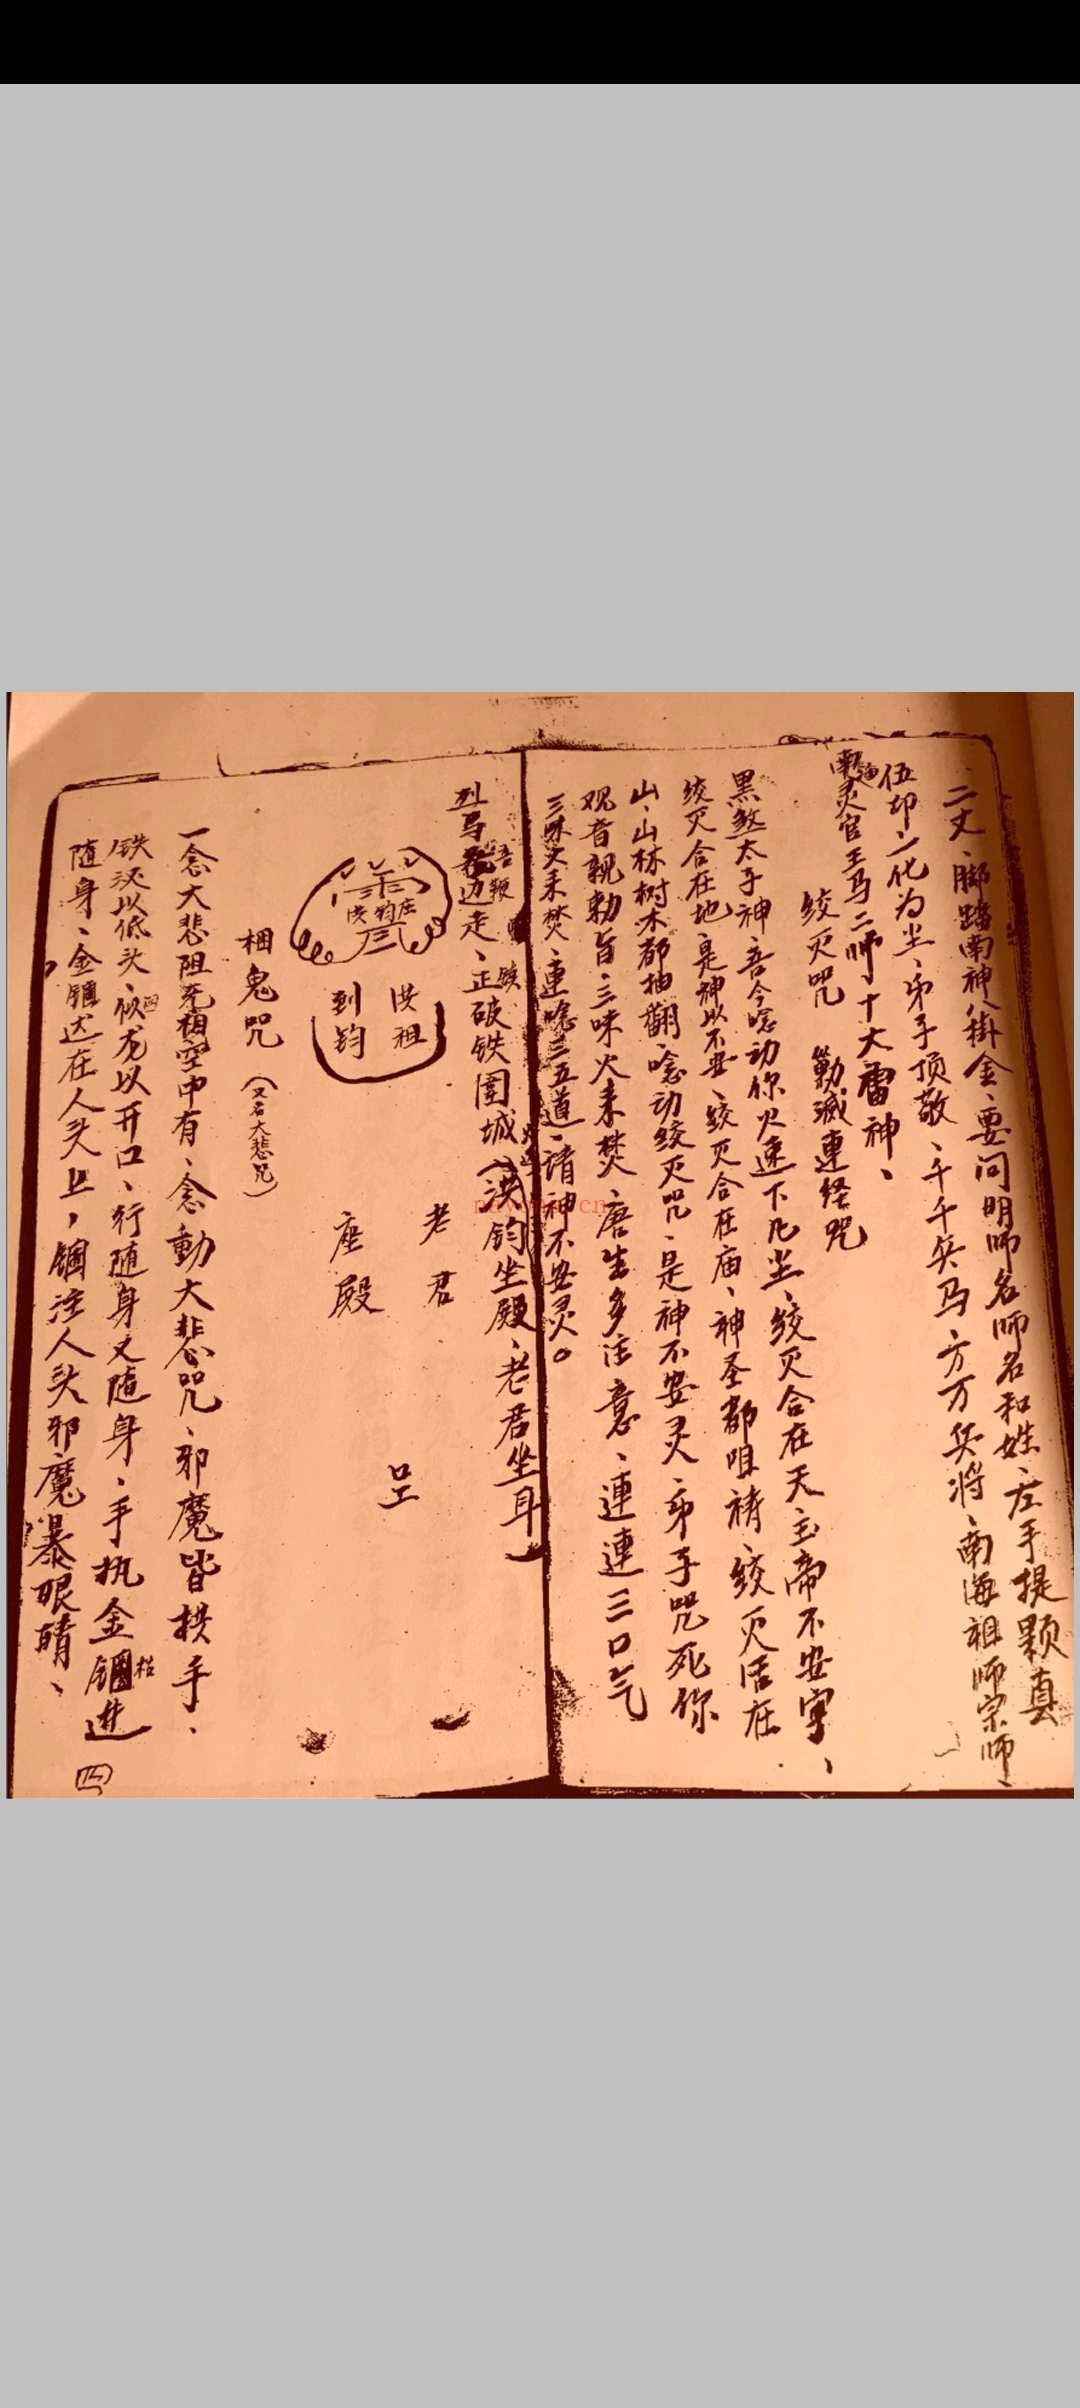 二丈、脚踏南神八掛金、要问明师名师名和姓、左手提颗真
伍印、一化为尘、弟子顶敬、千千兵马、万万兵将、南海祖师宗师、
南海灵官王马二师、十大雷神、
绞灭咒 勦滅連经咒
黑煞太子神、吾今唸动你、火速下凡尘、绞灭合在天、玉帝不安宁、
绞灭合在地、是神以不安、绞灭合在庙、神圣都咀祷、绞灭活在
山、山林树木都抽翻、唸动绞灭咒、是神不安灵、弟子咒死你
观音親勅旨、三味火来焚、唐生多注意、連連三口气
三味火来焚、連唸三五道、诸神不安灵。
列马 边走、正破铁圍城(洪钧坐殿、老君坐耳)
吾鞭
铁
洪钧座
洪祖
到钧
老君
座殿
捆鬼咒(又名大悲咒)
一念大悲阻 空中有、念動大悲咒、邪魔皆拱手、
铁 以低头、 龙以开口、行随身又随身、手执金锢进
随身、金锢达在人头上，锢注人头邪魔暴眼睛、
四